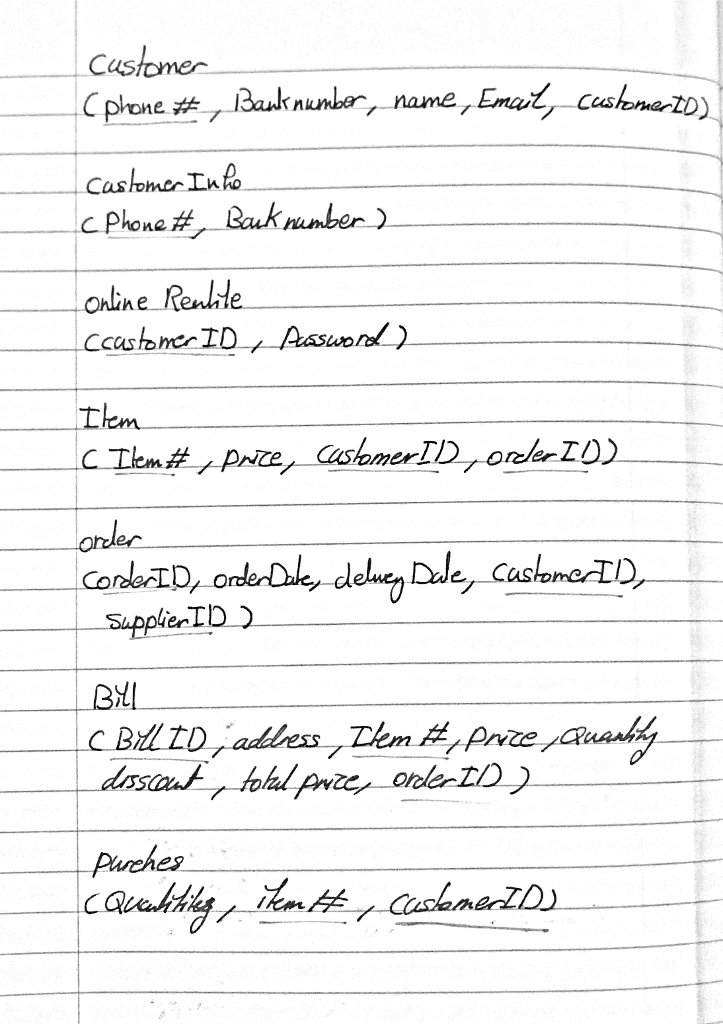 Customer
(phone #, Banknumber, name, Email, customerID)
Customer Info
(Phone #, Banknumber)
online
(customerID, Password)
Item
(Item#, price, CustomerID, orderID)
order
(orderID, orderDate, delivery Date, CustomerID,
SupplierID)
Bill
(Bill ID, address, Item #, price, Quantity
disscout, total price, orderID)
purches
(Quantitiy, item #, CustomerID)